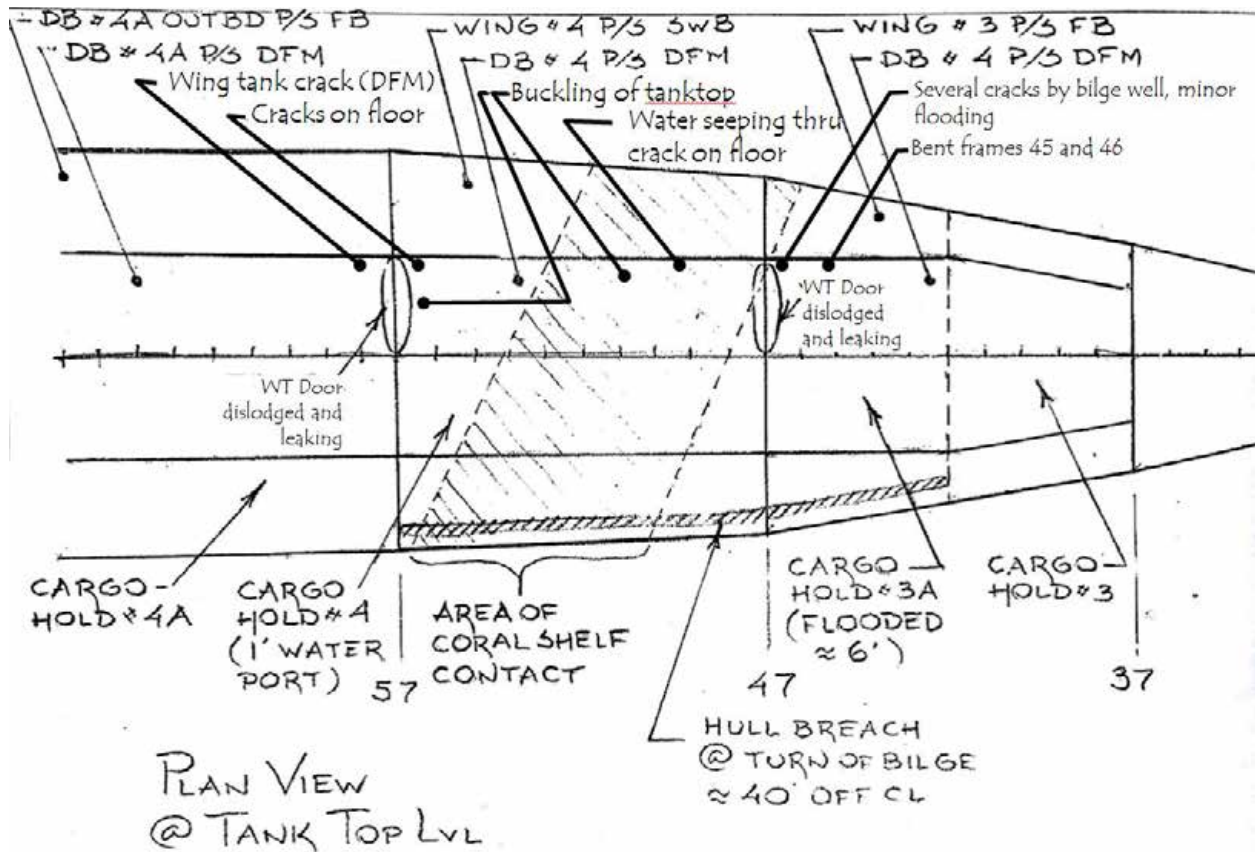 DB #4A OUTBD P/S FB
DB #4A P/S DFM
Wing tank crack (DFM)
Cracks on floor
WING #4 P/S SWB
DB #4 P/S DFM
Buckling of tanktop
Water seeping thru
crack on floor
WING #3 P/S FB
DB #4 P/S DFM
Several cracks by bilge well, minor
flooding
Bent frames 45 and 46
WT Door
dislodged and
leaking
WT Door
dislodged
and leaking
CARGO
HOLD #4A
CARGO
HOLD #4
(1' WATER
PORT)
AREA OF
CORAL SHELF
CONTACT
CARGO
HOLD #3A
(FLOODED
≈ 6')
CARGO
HOLD #3
57
47
37
HULL BREACH
@ TURN OF BILGE
≈ 40' OFF CL
PLAN VIEW
@ TANK TOP LVL